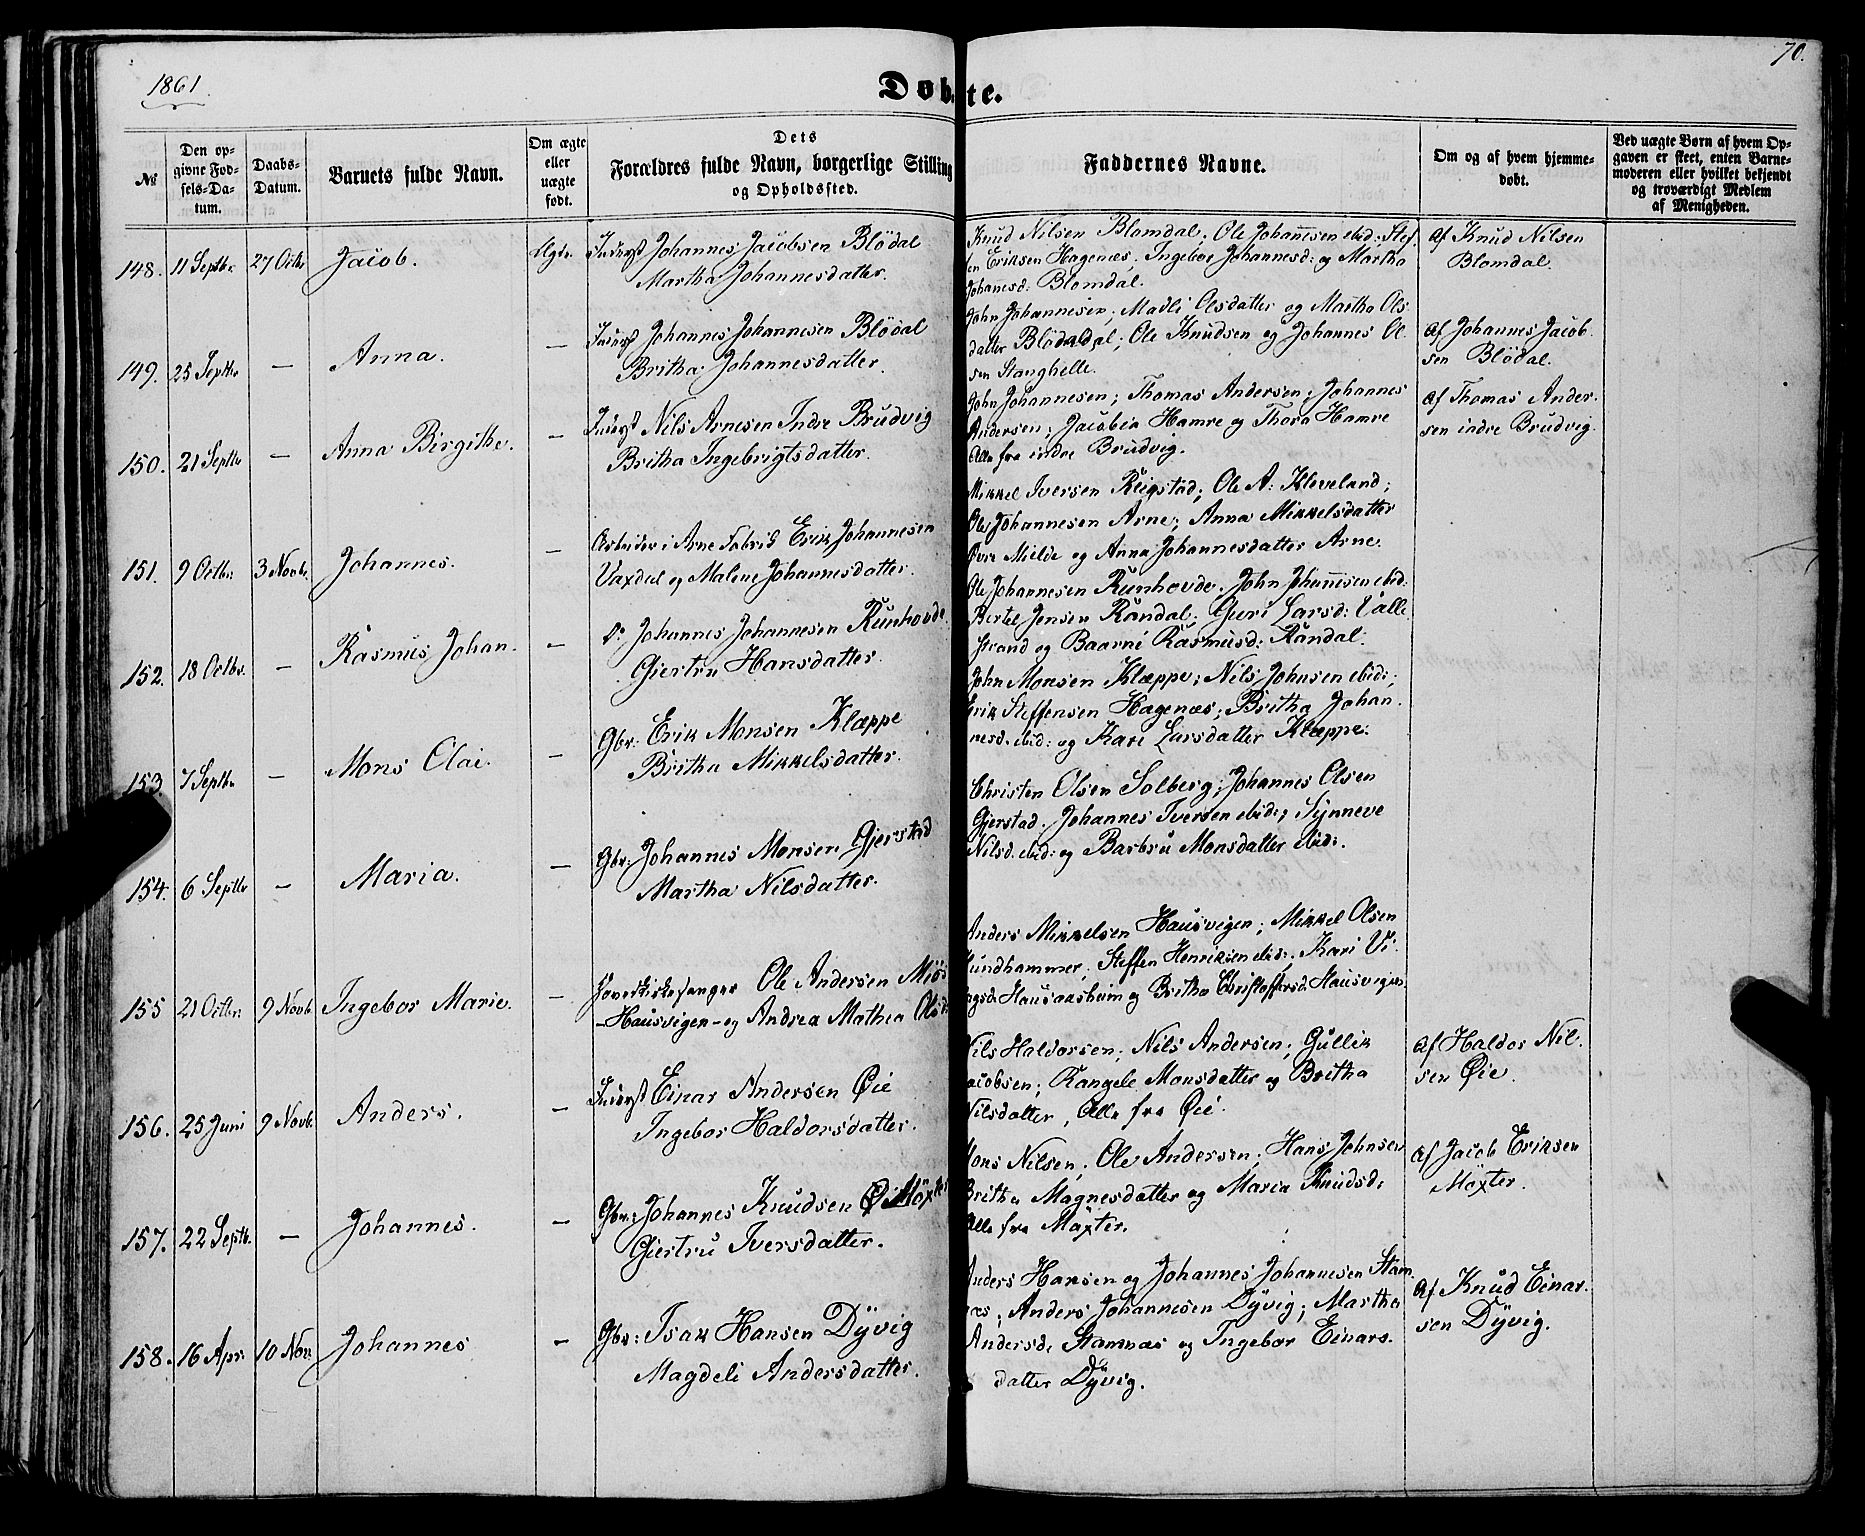 1861
Døbte.
70.
№
Den opgivne Fødsels-Datum.
Daabs-Datum.
Barnets fulde Navn.
Om ægte eller uægte født.
Dets Forældres fulde Navn, borgerlige Stilling og Opholdssted.
Faddernes Navne.
Om og af hvem hjemmedøbt.
Ved uægte Børn af hvem Opgaven er skeet, enten Barnemoderen eller hvilket bekjendt og troværdigt Medlem af Menigheden.
148. 11 Septbr 27 Octbr Jacob.
Inderst Johannes Jacobsen Blödal
Martha Johannesdatter.
Knud Nilsen Blomdal, Ole Johannesen ibid: Stef-
fen Eriksen Hagenæs, Ingebor Johannesd: og Martha
Johanesd: Blomdal.
Af Knud Nilsen
Blomdal.
149. 25 Septbr — Anna. —
Inderst Johannes Johannesen Blödal
Britha Johannesdatter.
John Johannesen; Madli Olsdatter og Martha Ols-
datter Blödal; Ole Knudsen og Johannes Ol-
sen Stanghelle.
Af Johannes Jacob-
sen Blödal.
150. 21 Septbr — Anna Birgithe. —
Inderst Nils Arnesen Indre Brudvig
Britha Ingebrigtsdatter.
John Johannesen; Thomas Andersen; Johannes
Andersen; Jacobia Hamre og Thora Hamre
Alle fra indre Brudvig.
Af Thomas Ander-
sen indre Brudvig.
151. 9 Octbr: 3 Novbr. Johannes. —
Arbeider i Arne Fabrik Erik Johannesen
Vaxdal og Malene Johannesdatter.
Mikkel Iversen Reigstad; Ole A: Kleveland;
Ole Johannesen Arne; Anna Mikkelsdatter
Øvre Mielde og Anna Johannesdatter Arne.
152. 18 Octbr. — Rasmus Johan. —
Do Johannes Johannesen Runhovde
Giertru Hansdatter.
Ole Johannesen Runhovde, John Johannesen ibid:
Bertel Jensen Röndal; Guri Larsd: Valle
Strand og Baarni Rasmusd: Röndal.
153. 7 Septbr — Mons Olai. —
Gbr: Erik Monsen Klæppe
Britha Mikkelsdatter.
John Monsen Klæppe; Nils Johnsen ibid:;
Erik Steffensen Hagenæs; Britha Johan-
nesd. ibid: og Kari Larsdatter Klæppe.
154. 6 Septbr — Maria. —
Gbr: Johannes Monsen Gjerstad
Martha Nilsdatter.
Christen Olsen Solberg; Johannes Olsen
Gjerstad. Johannes Iversen ibid:; Synneve
Nilsd. ibid: og Barbru Monsdatter ibid:.
155 21 Octbr: 9 Novb. Ingebor Marie. —
Ole Andersen Miös
-Hausvigen- og Andrea Mathea Olsd:
Anders Mikkelsen Hausvigen; Mikkel Olsen
Tundhammer; Steffen Henriksen ibid:; Kari Vi-
Hausaasheim og Britha Christoffersd: Hausvigen.
156. 25 Juni 9 Novb. Anders. —
Inderst Einar Andersen Øie
Ingebor Haldorsdatter.
Nils Haldorsen; Nils Andersen; Gullik
Jacobsen; Rangele Monsdatter og Britha
Nilsdatter, Alle fra Øie.
Af Haldor Nil-
sen Øie.
157. 22 Septb. — Johannes. —
Gbr: Johannes Knudsen Möxter
Giertru Iversdatter.
Mons Nilsen; Ole Andersen; Hans Johnsen
Britha Magnesdatter og Maria Knudsd:
Alle fra Möxter.
Af Jacob Eriksen
Möxter.
158. 16 Apr. 10 Nov. Johannes —
Gbr: Isak Hansen Dÿvig
Magdeli Andersdatter.
Anders Hansen og Johannes Johannesen Stam-
næs, Anders Johannesen Dÿvig; Martha
Andersd: Stamnæs og Ingebor Einars-
datter Dÿvig.
Af Knud Einar-
sen Dÿvig.